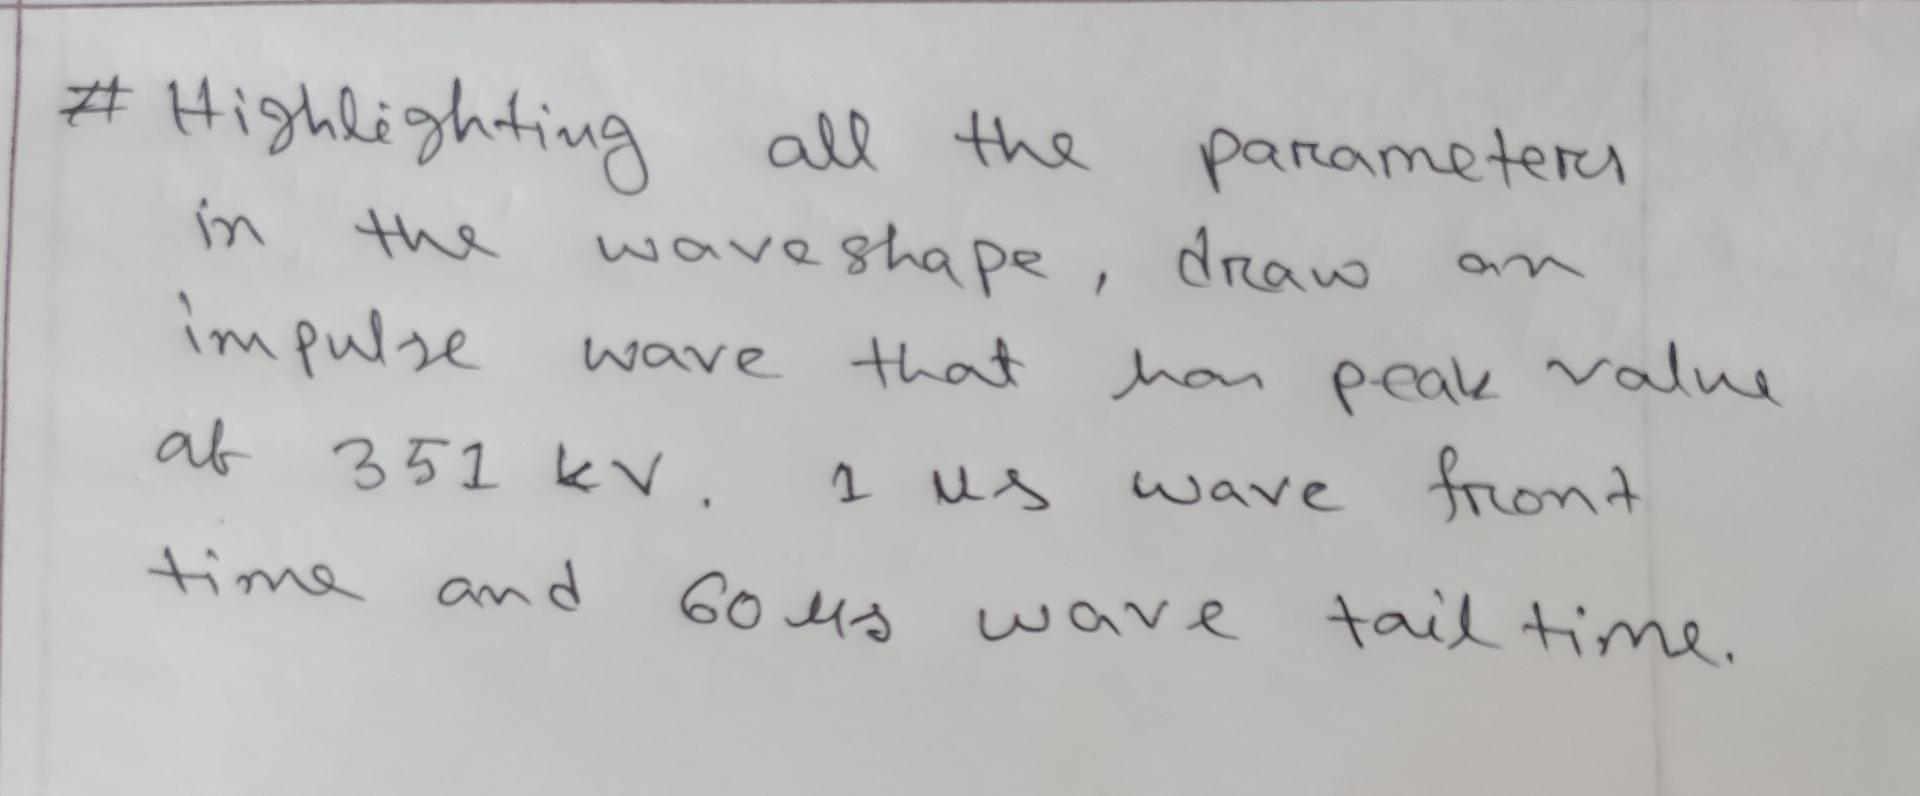 # Highlighting all the parameters
in the waveshape, draw an
impulse wave that has peak value
at 351 kV. 1 μs wave front
time and 60 μs wave tail time.